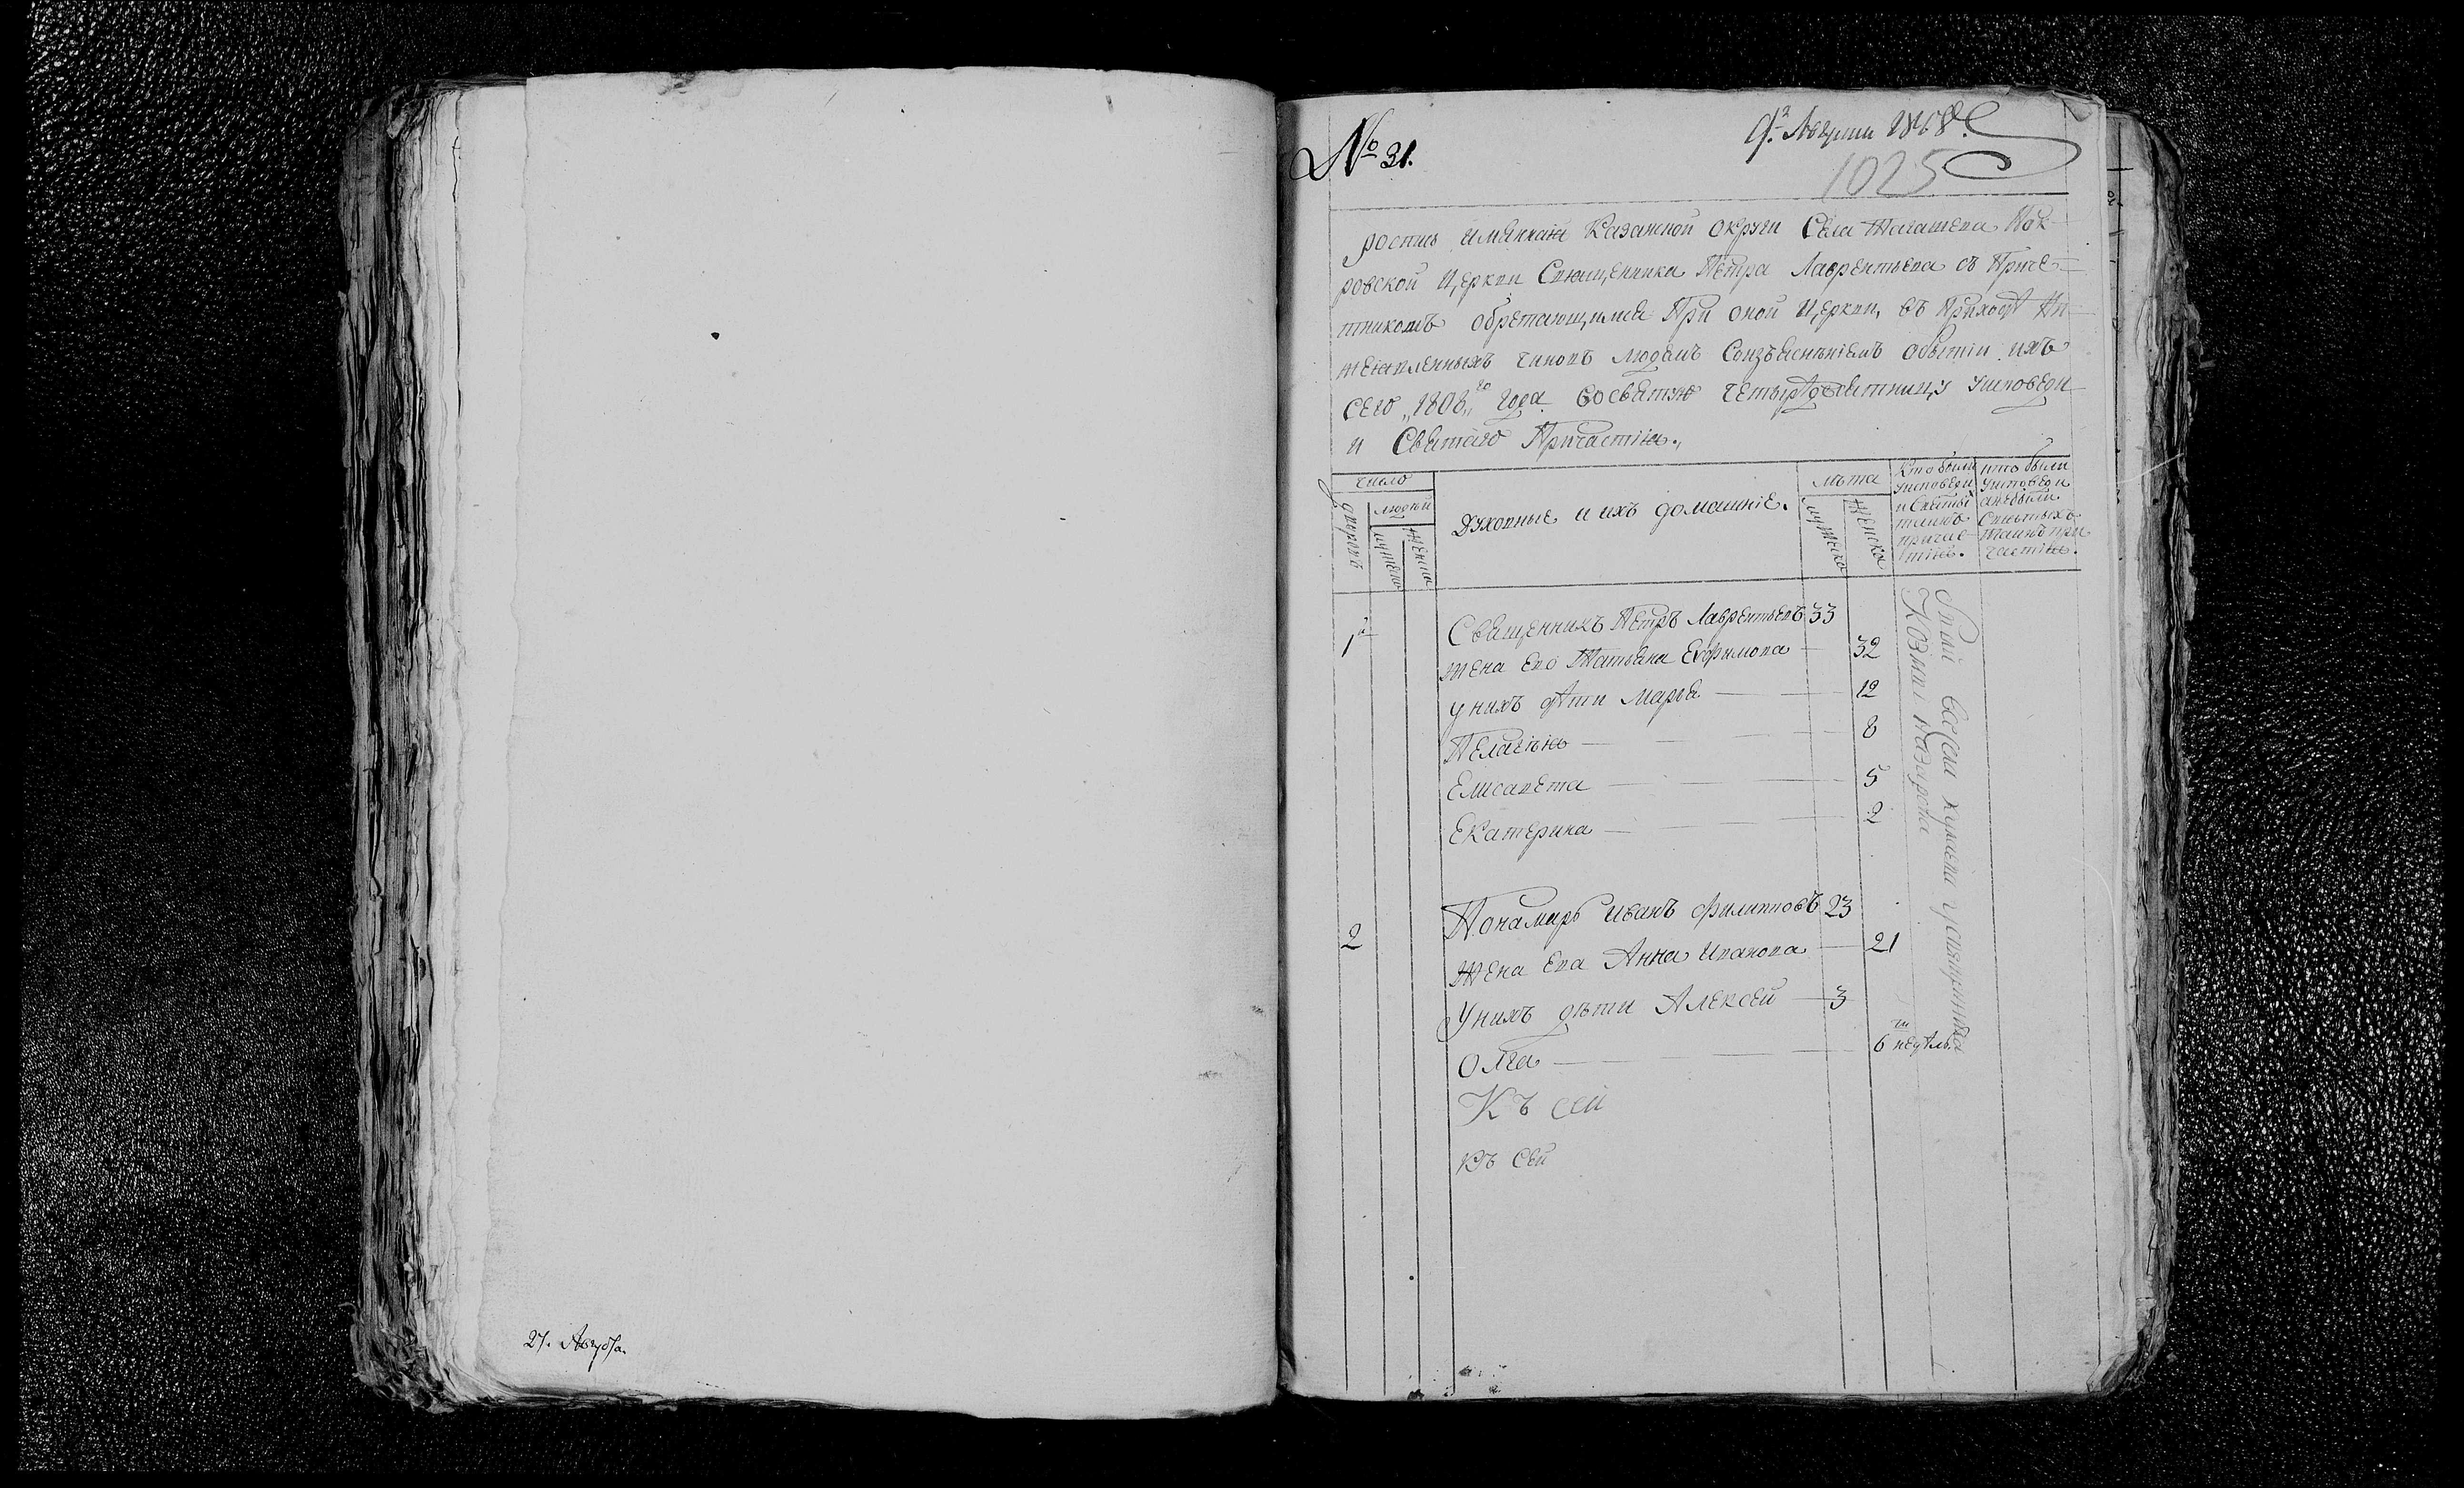 27. Августа.
№ 31.
9. Августа 1808.
1025
роспись имянная Казанской округи Села Тагашева Пок-
ровской Церкви Священника Петра Лаврентьева съ Приче-
тникомъ обретающимся При оной Церкви, въ Приходѣ
чиновъ людемъ Сонзъясненіемъ обытіи ихъ
сего „1808„го года во святую четыредесятницу у исповеди
и Святаго Причастія.
число
дворовъ
людей
мужеска
женска
Духовные и ихъ домашніе.
лѣта
мужеска
женска
Кто были
у исповеди
и Святыхъ
таинъ
причас-
тия.
кто были
у исповеди
а небыли
Святыхъ
таинъ при
частия.
1й Священникъ Петръ Лаврентьевъ 33
жена Его Татьяна Ефимова 32
у нихъ дѣти Марья 12
Пелагія 8
Елисавета 5
Екатерина 2
2 Понамарь Иванъ Филипповъ 23
Жена Ева Анна Иванова 21
У нихъ дѣти Алексей 3
Олга 6ти недѣль
Къ сей
Къ Сей